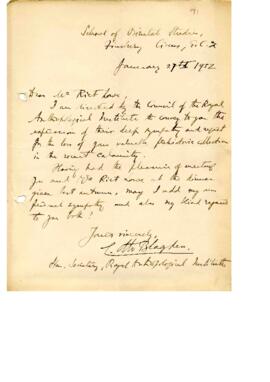 School of Oriental Studies,
Finsbury Circus, E.C.2
January 29th 1932
Dear Mr Rickt
I am directed by the Council of the Royal
Anthropological Institute to convey to you the
expression of their deep sympathy and regret
for the loss of your valuable prehistoric collection
in the recent calamity.
Having had the pleasure of meeting
you and Mrs at the dinner
given last autumn, may I add my own
personal sympathy and also my kind regards
to you both!
Yours sincerely,
C. Otto Blagden
Hon. Secretary, Royal Anthropological Institute